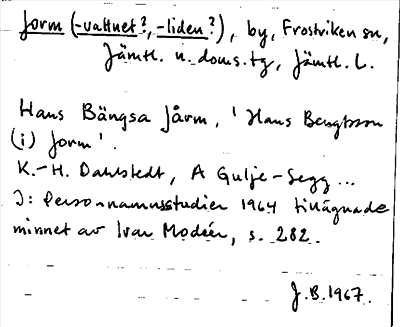 Jorm (-vattnet?, -liden?), by, Frostviken sn,
Jämtl. n. doms. tg, Jämtl. L.
Hans Bängsa Jårm, 'Hans Bengtsson
(i) Jorm'.
K.-H. Dahlstedt, A Gulje-Segg...
I: Personnamnsstudier 1964 tillägnade
minnet av Ivar Modéer, s. 282.
J.B. 1967.